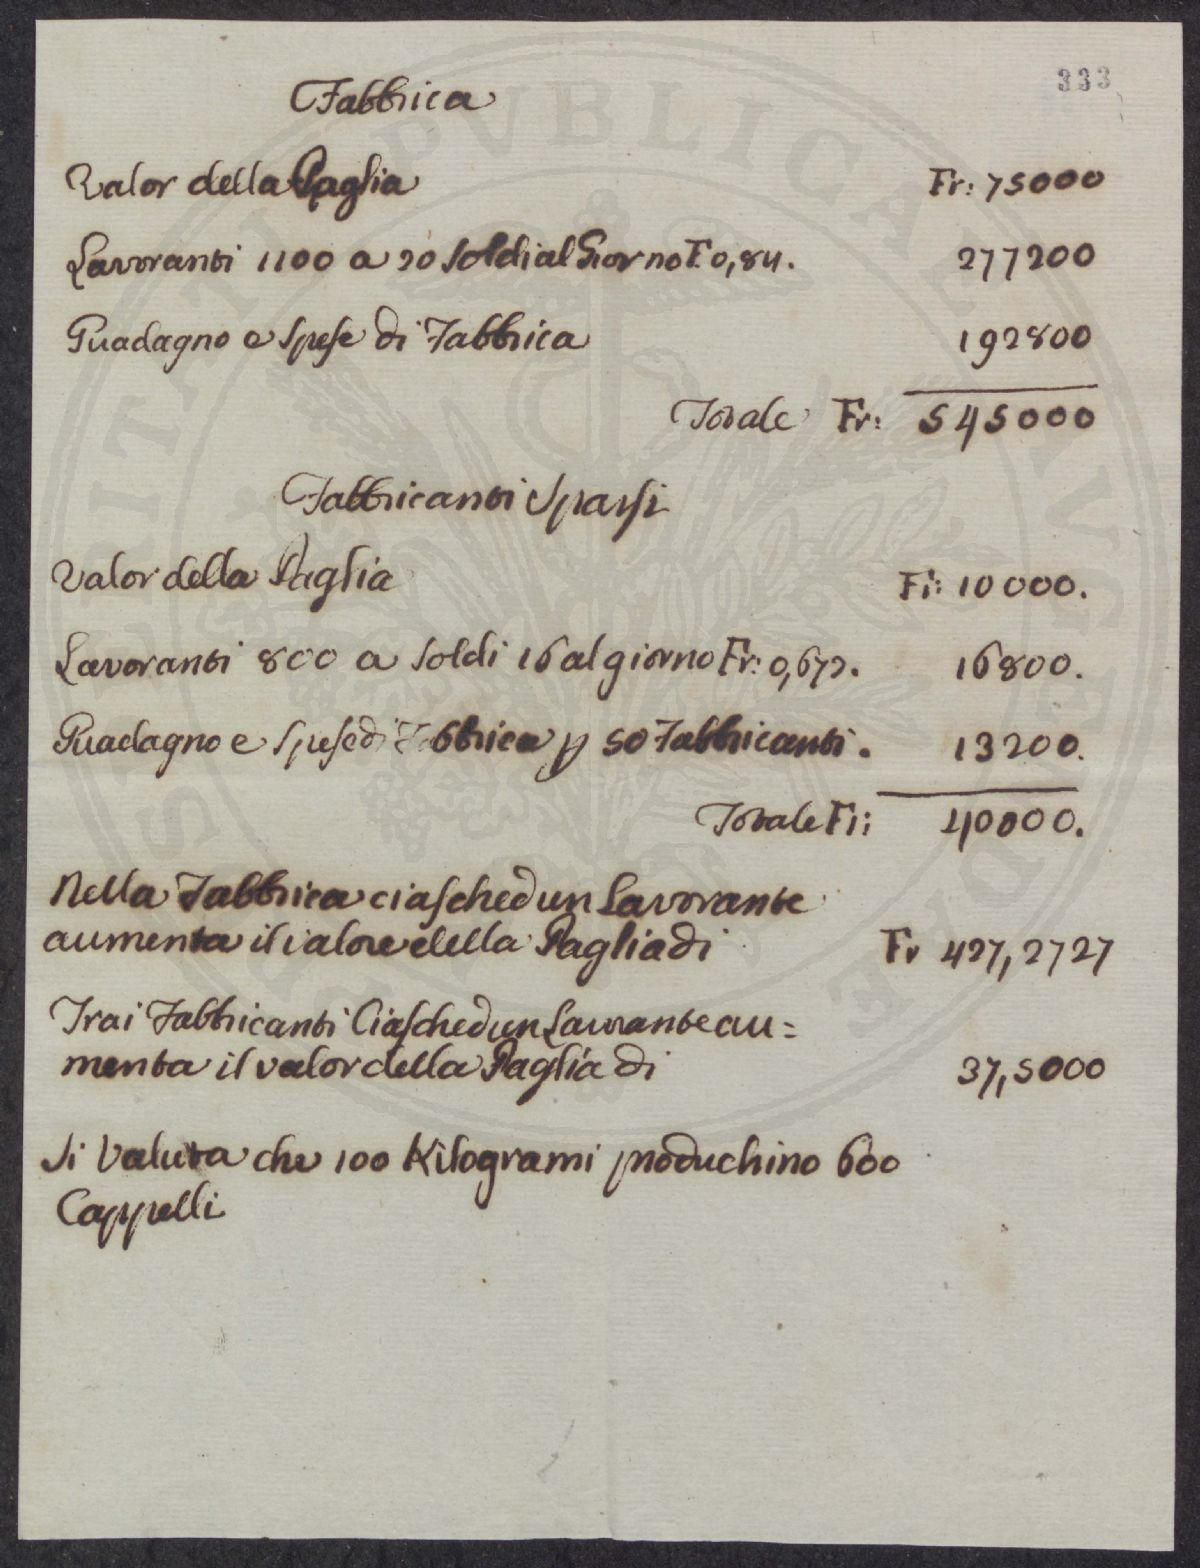 333
Fabbrica
Valor della Paglia Fr: 75000
Lavoranti 1100 a 20 Soldi al Giorno F. 0,84. 277200
Guadagno e Spese di Fabbrica 192800
Totale Fr: 545000
Fabbricanti Sparsi
Valor della Paglia Fr: 10000.
Lavoranti 800 a Soldi 16 al giorno Fr: 0,672. 16800.
Guadagno e Spese di Fabbrica p 50 Fabbricanti. 13200.
Totale Fr: 40000.
Nella Fabbrica ciaschedun Lavorante
aumenta il valore della Paglia di Fr 427,2727
Trai Fabbricanti Ciaschedun Lavorante au=
menta il valor della Paglia di 37,5000
Si Valuta che 100 Kilogrami produchino 600
Cappelli